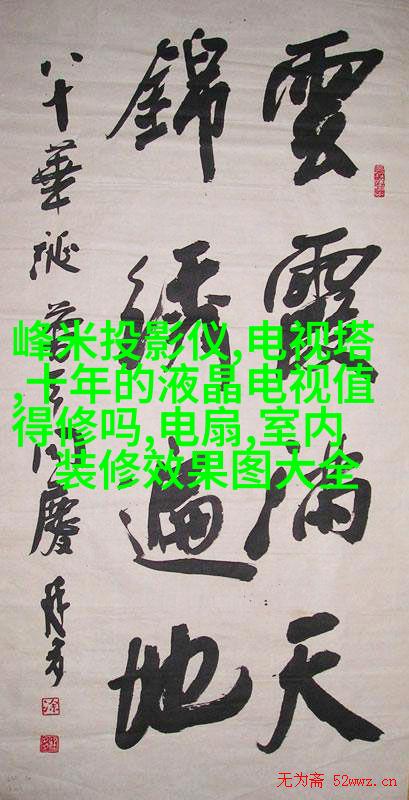 雲霞滿天
錦綉遍地
八十華誕
峰米投影仪,电视塔
,十年的液晶电视值
得修吗,电扇,室内
装修效果图大全
无为斋 52wwz.cn